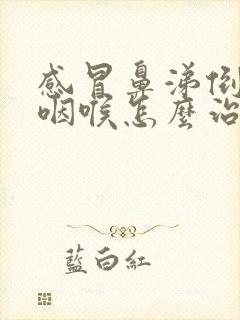 感冒鼻涕倒
咽喉怎麼治
藍白紅